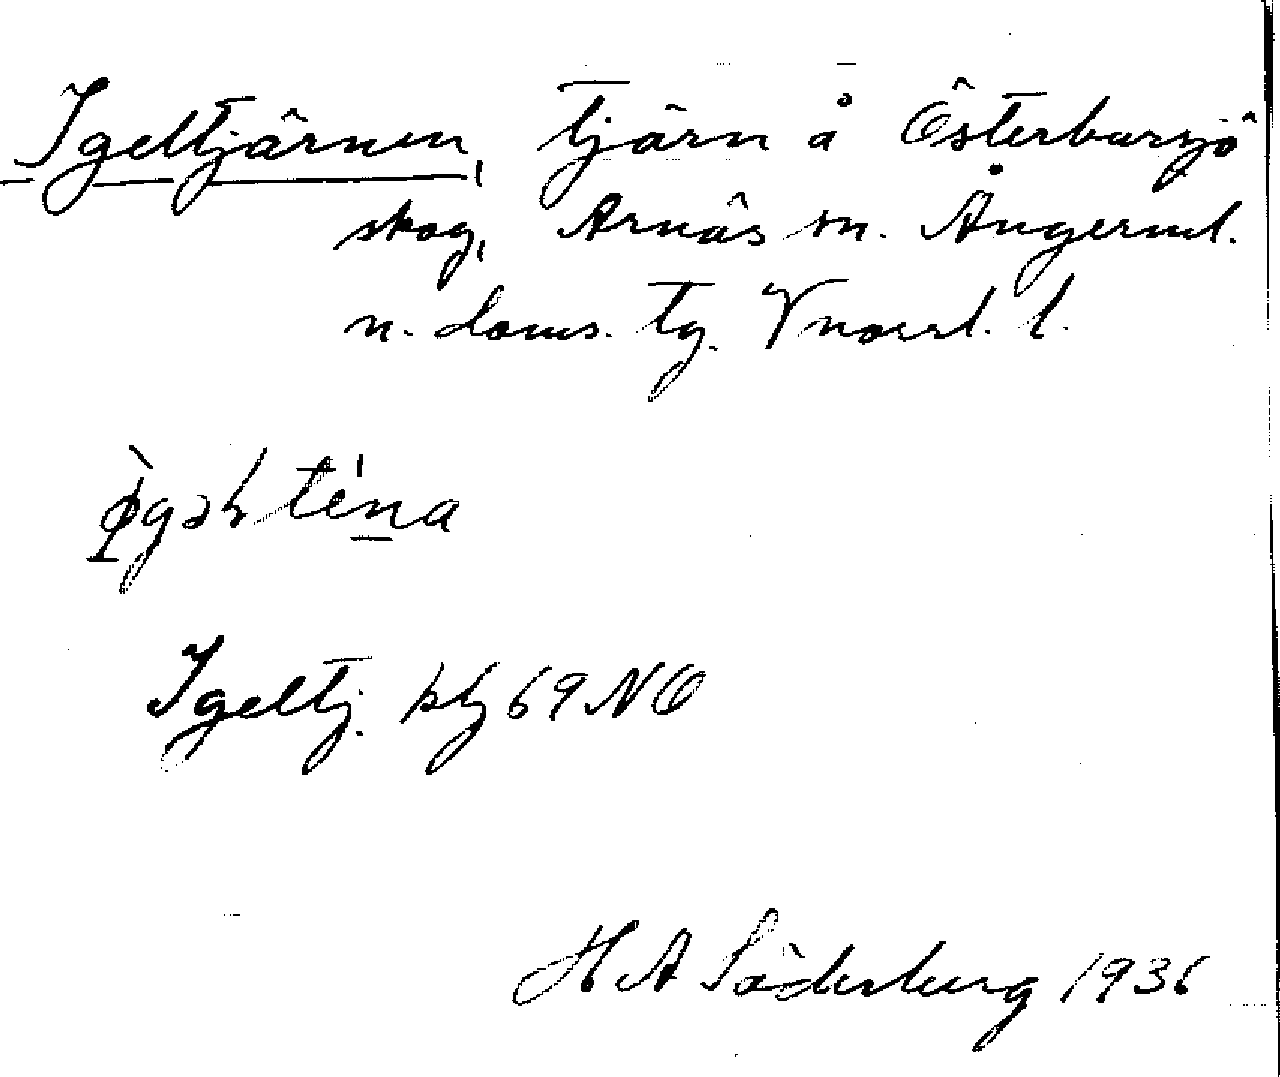 Igeltjärnen, tjärn å Österbursjö
skog, Arnäs sn. Ångerml.
n. doms. tg. Vnorrl. l.
Igeltj. blj 69 NO
H A Söderberg 1936